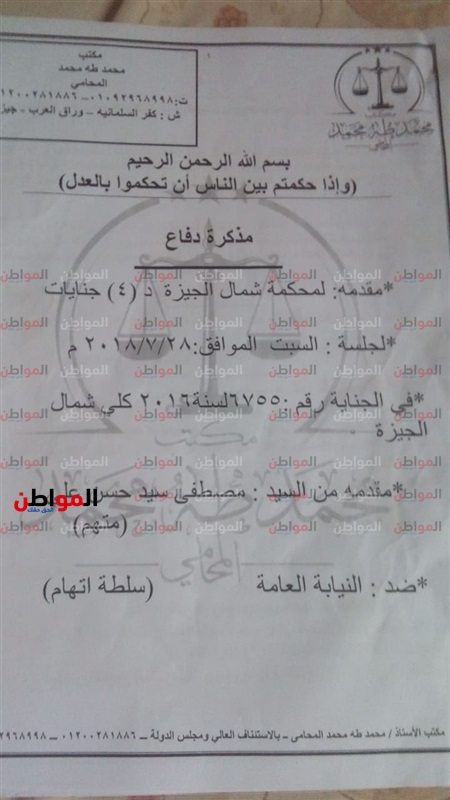 مكتب
محمد طه محمد
المحامي
ت: ٠١٠٩٢٩٦٨٩٩٨ - ٠١٢٠٠٢٨١٨٨٦
ش : كفر السلمانيه - وراق العرب - جيز
محمد طه محمد
المحامي
بسم الله الرحمن الرحيم
(وإذا حكمتم بين الناس أن تحكموا بالعدل)
مذكرة دفاع
*مقدمه: لمحكمة شمال الجيزة د (٤) جنايات
*لجلسة : السبت الموافق:٢٠١٨/٧/٢٨ م
*في الجناية رقم ٦٧٥٥٠ لسنة ٢٠١٦ كلي شمال
الجيزة
*مقدمه من السيد : مصطفى سيد حسن
(متهم)
*ضد : النيابة العامة (سلطة اتهام)
مكتب
محمد طه محمد
المحامي
المواطن
مكتب الأستاذ / محمد طه محمد المحامى – بالاستئناف العالي ومجلس الدولة – ٠١٢٠٠٢٨١٨٨٦ –